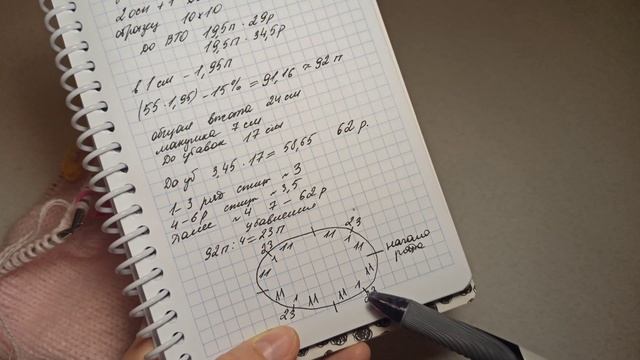 2 осн + 1
образец 10x10
до ВТО 19,5п · 29р
19,5п · 34,5р
в 1 см - 1,95п
(55 · 1,95) - 15% = 91,16 ≈ 92 п
общая высота 24 см
макушка 7 см
До убавок 17 см
До уб 3,45 · 17 = 58,65 62 р.
1-3 ряд спиц ~ 3
4-6р спиц ~ 3,5
Далее ~ 4 7 - 62р
убавления
92п : 4 = 23п
23 1 11 11 23 1 11
начало ряда
11 11 1 23 11 11 1 23 11